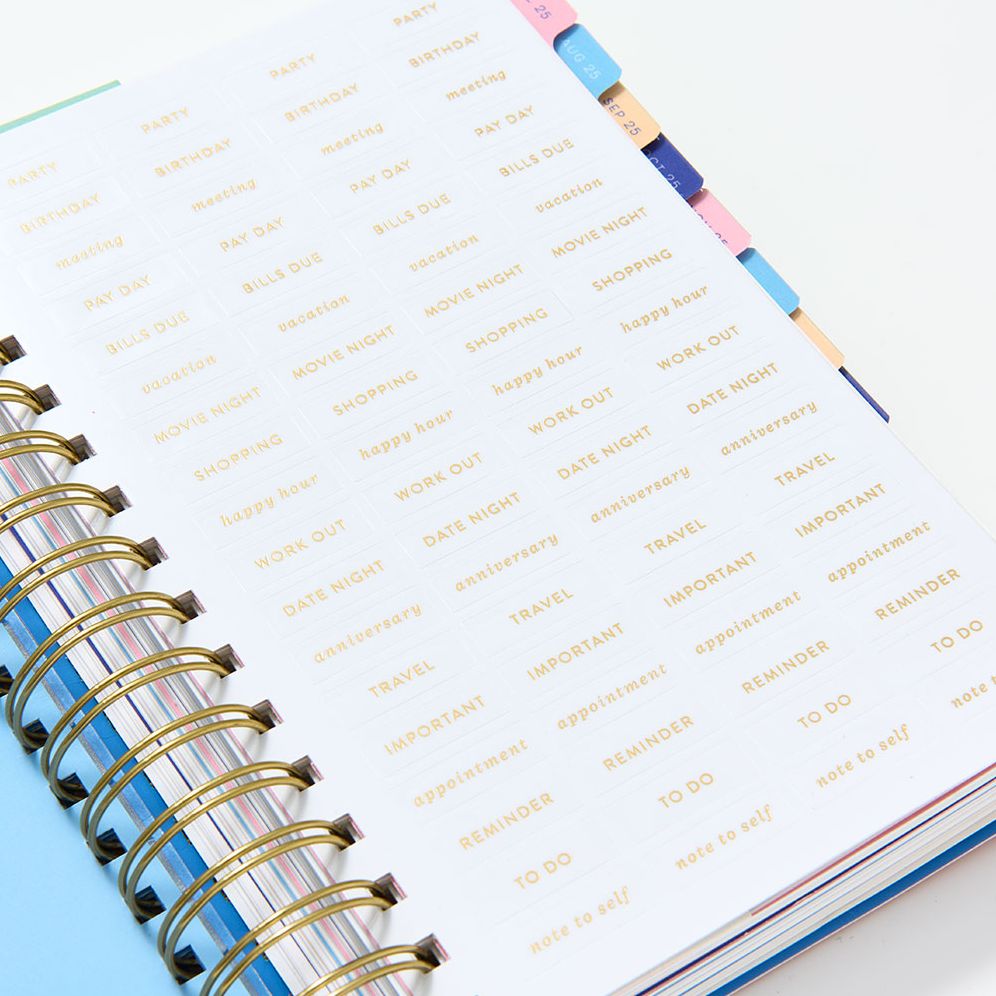 PARTY PARTY PARTY PARTY
BIRTHDAY BIRTHDAY BIRTHDAY BIRTHDAY
meeting meeting meeting meeting
PAY DAY PAY DAY PAY DAY PAY DAY
BILLS DUE BILLS DUE BILLS DUE BILLS DUE
vacation vacation vacation vacation
MOVIE NIGHT MOVIE NIGHT MOVIE NIGHT MOVIE NIGHT
SHOPPING SHOPPING SHOPPING SHOPPING
happy hour happy hour happy hour happy hour
WORK OUT WORK OUT WORK OUT WORK OUT
DATE NIGHT DATE NIGHT DATE NIGHT DATE NIGHT
anniversary anniversary anniversary anniversary
TRAVEL TRAVEL TRAVEL TRAVEL
IMPORTANT IMPORTANT IMPORTANT IMPORTANT
appointment appointment appointment appointment
REMINDER REMINDER REMINDER REMINDER
TO DO TO DO TO DO TO DO
note to self note to self note to self note
25
AUG 25
SEP 25
OCT 25